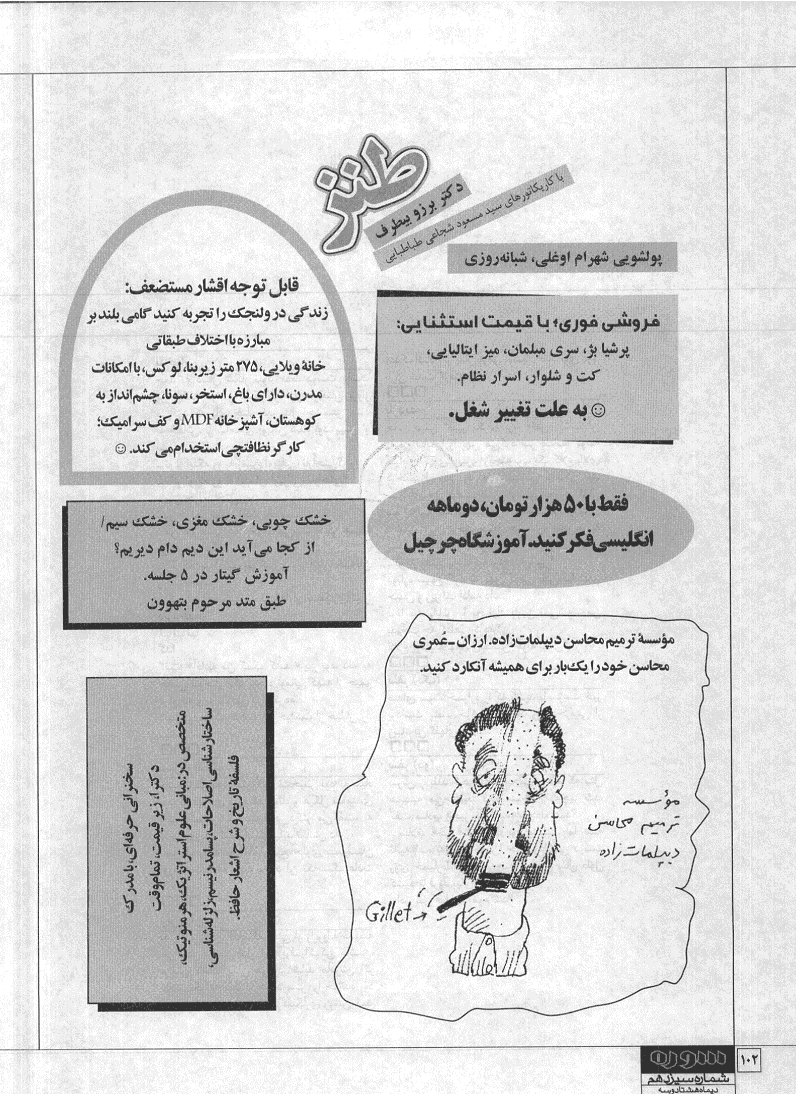 طنز
دکتر برزو بیطرف
با کاریکاتورهای سید مسعود شجاعی طباطبایی
پولشویی شهرام اوغلی، شبانه‌روزی
فروشی فوری؛ با قیمت استثنایی:
پرشیا بژ، سری مبلمان، میز ایتالیایی،
کت و شلوار، اسرار نظام.
☺ به علت تغییر شغل.
قابل توجه اقشار مستضعف:
زندگی در ولنجک را تجربه کنید گامی بلند بر
مبارزه با اختلاف طبقاتی
خانهٔ ویلایی، ۲۷۵ متر زیربنا، لوکس، با امکانات
مدرن، دارای باغ، استخر، سونا، چشم‌انداز به
کوهستان، آشپزخانه MDF و کف سرامیک؛
کارگر نظافتچی استخدام می کند. ☺
فقط با ۵۰ هزار تومان، دو ماهه
انگلیسی فکر کنید. آموزشگاه چرچیل
خشک چوبی، خشک مغزی، خشک سیم/
از کجا می‌آید این دیم دام دیریم؟
آموزش گیتار در ۵ جلسه.
طبق متد مرحوم بتهوون
مؤسسهٔ ترمیم محاسن دیپلمات‌زاده. ارزان ـ عُمری
محاسن خود را یک‌بار برای همیشه آنکارد کنید.
مؤسسه
ترمیم محاسن
دیپلمات زاده
Gillet
سخنرانی حرفه‌ای، با مدرک
دکترا، زیر قیمت، تمام‌وقت
متخصص در: مبانی علوم استراتژیک، هرمنوتیک،
ساختارشناسی اصلاحات، پسامدرنیسم، زلزله‌شناسی،
فلسفهٔ تاریخ و شرح اشعار حافظ.
۱۰۲
سوره
شماره سیزدهم
دیماه هشتادوسه